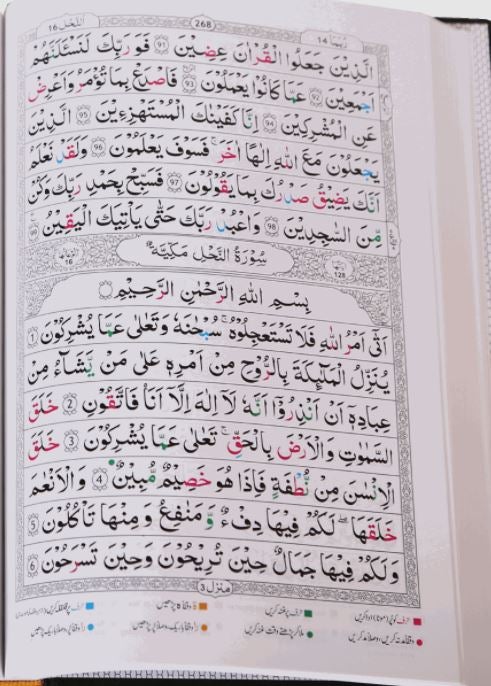 النحل 16
268
ربما 14
الَّذِيْنَ جَعَلُوا الْقُرْاٰنَ عِضِيْنَ ﴿91﴾ فَوَرَبِّكَ لَنَسْـَٔلَنَّهُمْ
اَجْمَعِيْنَ ﴿92﴾ عَمَّا كَانُوْا يَعْمَلُوْنَ ﴿93﴾ فَاصْدَعْ بِمَا تُؤْمَرُ وَاَعْرِضْ
عَنِ الْمُشْرِكِيْنَ ﴿94﴾ اِنَّا كَفَيْنٰكَ الْمُسْتَهْزِءِيْنَ ﴿95﴾ الَّذِيْنَ
يَجْعَلُوْنَ مَعَ اللّٰهِ اِلٰهًا اٰخَرَ ۚ فَسَوْفَ يَعْلَمُوْنَ ﴿96﴾ وَلَقَدْ نَعْلَمُ
اَنَّكَ يَضِيْقُ صَدْرُكَ بِمَا يَقُوْلُوْنَ ﴿97﴾ فَسَبِّحْ بِحَمْدِ رَبِّكَ وَكُنْ
مِّنَ السّٰجِدِيْنَ ﴿98﴾ وَاعْبُدْ رَبَّكَ حَتّٰى يَاْتِيَكَ الْيَقِيْنُ ﴿99﴾
سُوْرَةُ النَّحْلِ مَكِّيَّةٌ
16
128
بِسْمِ اللّٰهِ الرَّحْمٰنِ الرَّحِيْمِ
اَتٰٓى اَمْرُ اللّٰهِ فَلَا تَسْتَعْجِلُوْهُ ؕ سُبْحٰنَهٗ وَتَعٰلٰى عَمَّا يُشْرِكُوْنَ ﴿1﴾
يُنَزِّلُ الْمَلٰٓئِكَةَ بِالرُّوْحِ مِنْ اَمْرِهٖ عَلٰى مَنْ يَّشَآءُ مِنْ
عِبَادِهٖٓ اَنْ اَنْذِرُوْٓا اَنَّهٗ لَآ اِلٰهَ اِلَّآ اَنَا فَاتَّقُوْنِ ﴿2﴾ خَلَقَ
السَّمٰوٰتِ وَالْاَرْضَ بِالْحَقِّ ؕ تَعٰلٰى عَمَّا يُشْرِكُوْنَ ﴿3﴾ خَلَقَ
الْاِنْسٰنَ مِنْ نُّطْفَةٍ فَاِذَا هُوَ خَصِيْمٌ مُّبِيْنٌ ﴿4﴾ وَالْاَنْعٰمَ
خَلَقَهَا ۚ لَكُمْ فِيْهَا دِفْءٌ وَّ مَنٰفِعُ وَمِنْهَا تَاْكُلُوْنَ ﴿5﴾
وَلَكُمْ فِيْهَا جَمَالٌ حِيْنَ تُرِيْحُوْنَ وَحِيْنَ تَسْرَحُوْنَ ﴿6﴾
منزل 3